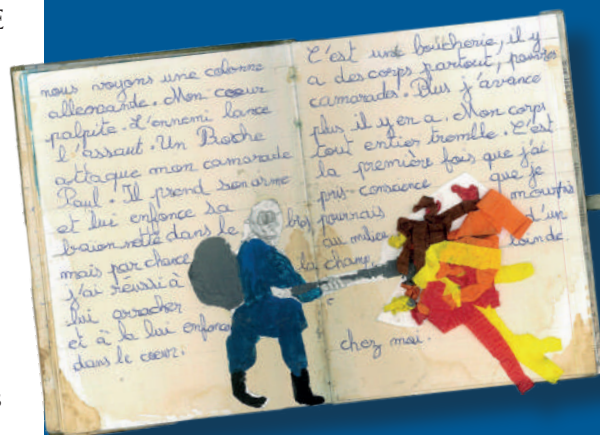 nous voyons une colonne
allemande. Mon coeur
palpite. L'ennemi lance
l'assaut. Un Boche
attaque mon camarade
Paul. Il prend son arme
et lui enfonce sa
baionnette dans le bras
mais par chance
j'ai réussi à
lui arracher
et à la lui enfoncer
dans le coeur.
C'est une boucherie, il y
a des corps partout, pauvres
camarades. Plus j'avance
plus il y en a. Mon corps
tout entier tremble. C'est
la première fois que j'ai
pris conscience que je
pourrais mourir
au milieu d'un
champ, loin de
chez moi.
E